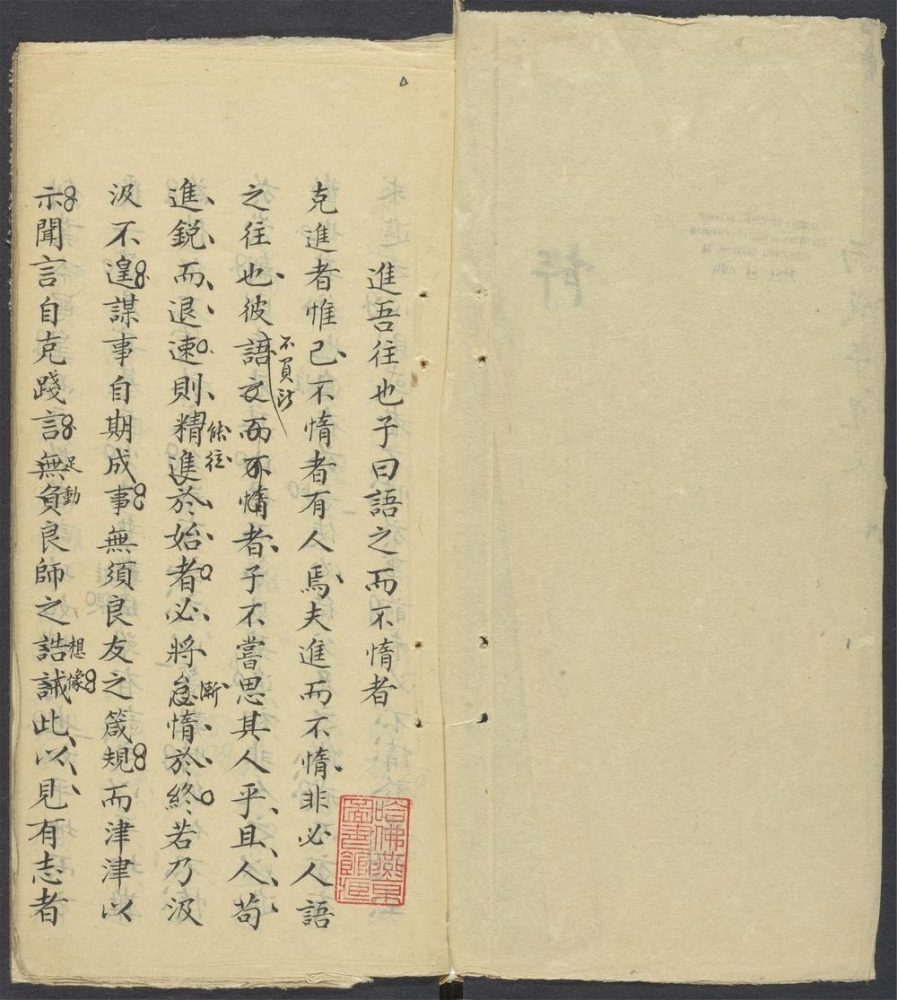 進吾往也子曰語之而不惰者
克進者惟己不惰者有人焉夫進而不惰非必人語
之往也彼語之而不惰者子不嘗思其人乎且人苟
不負所
進銳而退速則精進於始者必將怠惰於終若乃汲
能往
漸
汲不遑謀事自期成事無須良友之箴規而津津以
示聞言自克踐言無負良師之誥誡此以見有志者
足動
想像
哈佛燕京
圖書館